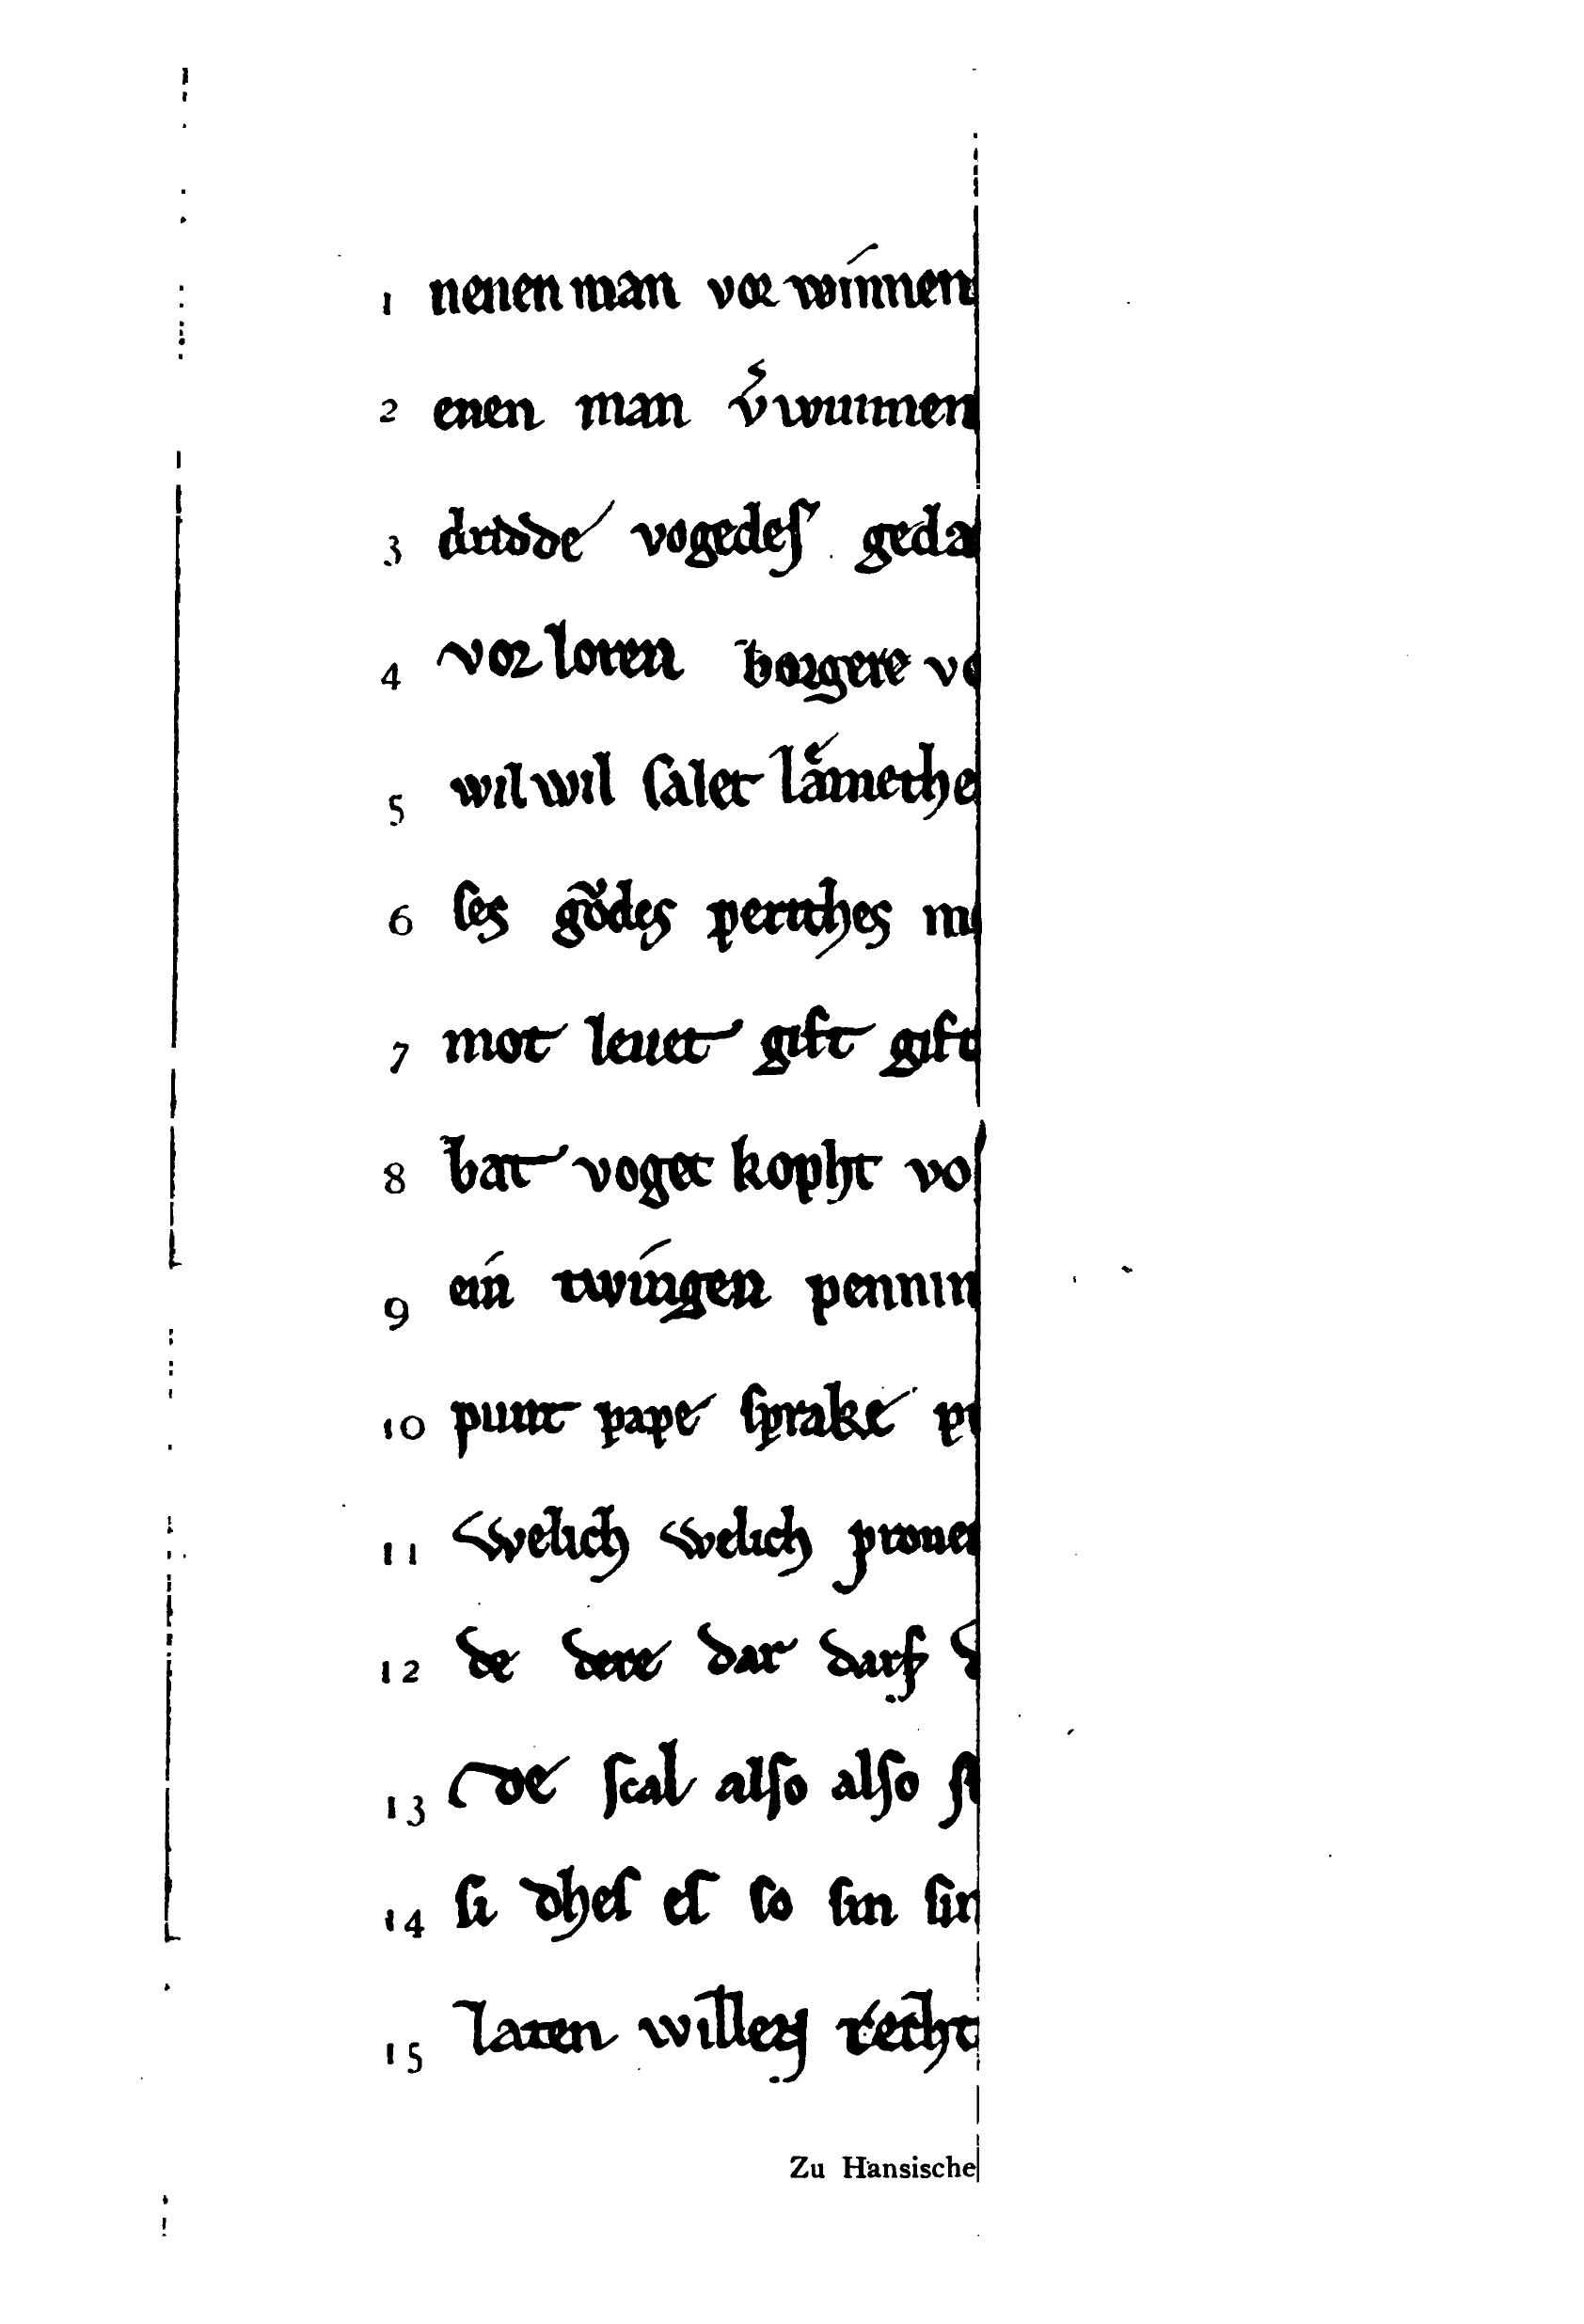 1 nenen man vor winnen
2 enen man v͛wunnen
3 dridde vogedeſ geda
4 vor loren borgere vo
5 wil wil ſalet lamethe
6 ſes godes perithes m
7 mot leuet gift gift
8 bat voget kopht vo
9 ein twingen pennin
10 punt pape ſprake p
11 welich welich prouer
12 de dere dar darf
13 de ſcal alſo alſo ſ
14 ſi dheſ eſ ſo ſin ſin
15 laten willen recht
Zu Hansische